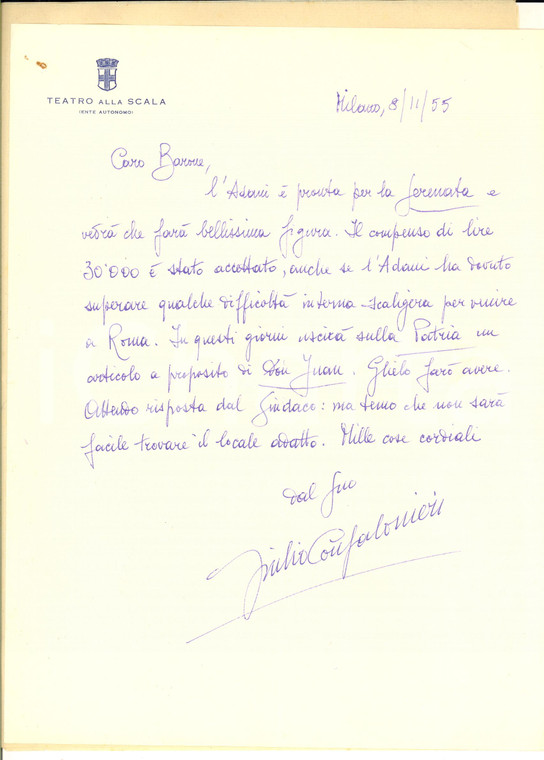 TEATRO ALLA SCALA
(ENTE AUTONOMO)
Milano, 8/11/55
Caro Barone,
l'Adani è pronta per la Serenata e
vedrà che farà bellissima figura. Il compenso di lire
30.000 è stato accettato, anche se l'Adani ha dovuto
superare qualche difficoltà interna-scaligera per venire
a Roma. In questi giorni uscirà sulla Patria un
articolo a proposito di Don Juan. Glielo farò avere.
Attendo risposta dal Sindaco: ma temo che non sarà
facile trovare il locale adatto. Mille cose cordiali
dal Suo
Giulio Confalonieri